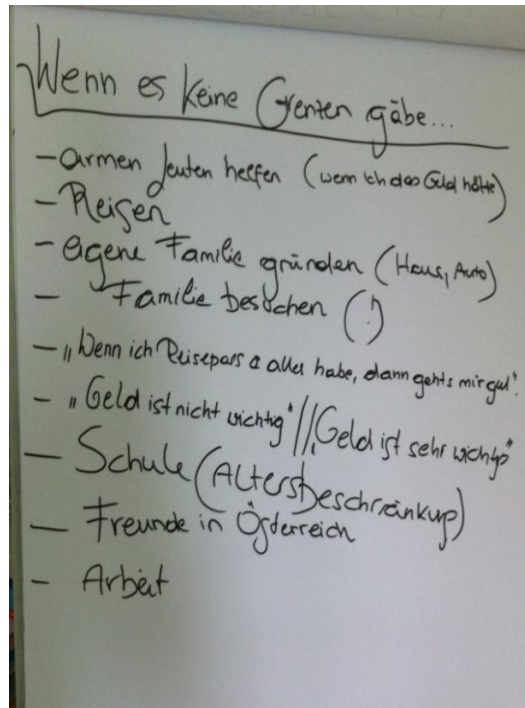 Wenn es keine Grenzen gäbe...
- armen Leuten helfen (wenn ich das Geld hätte)
- Reisen
- eigene Familie gründen (Haus, Auto)
- Familie besuchen (!)
- „Wenn ich Reisepass & alles habe, dann gehts mir gut".
- „Geld ist nicht wichtig" // „Geld ist sehr wichtig"
- Schule (Altersbeschränkung)
- Freunde in Österreich
- Arbeit